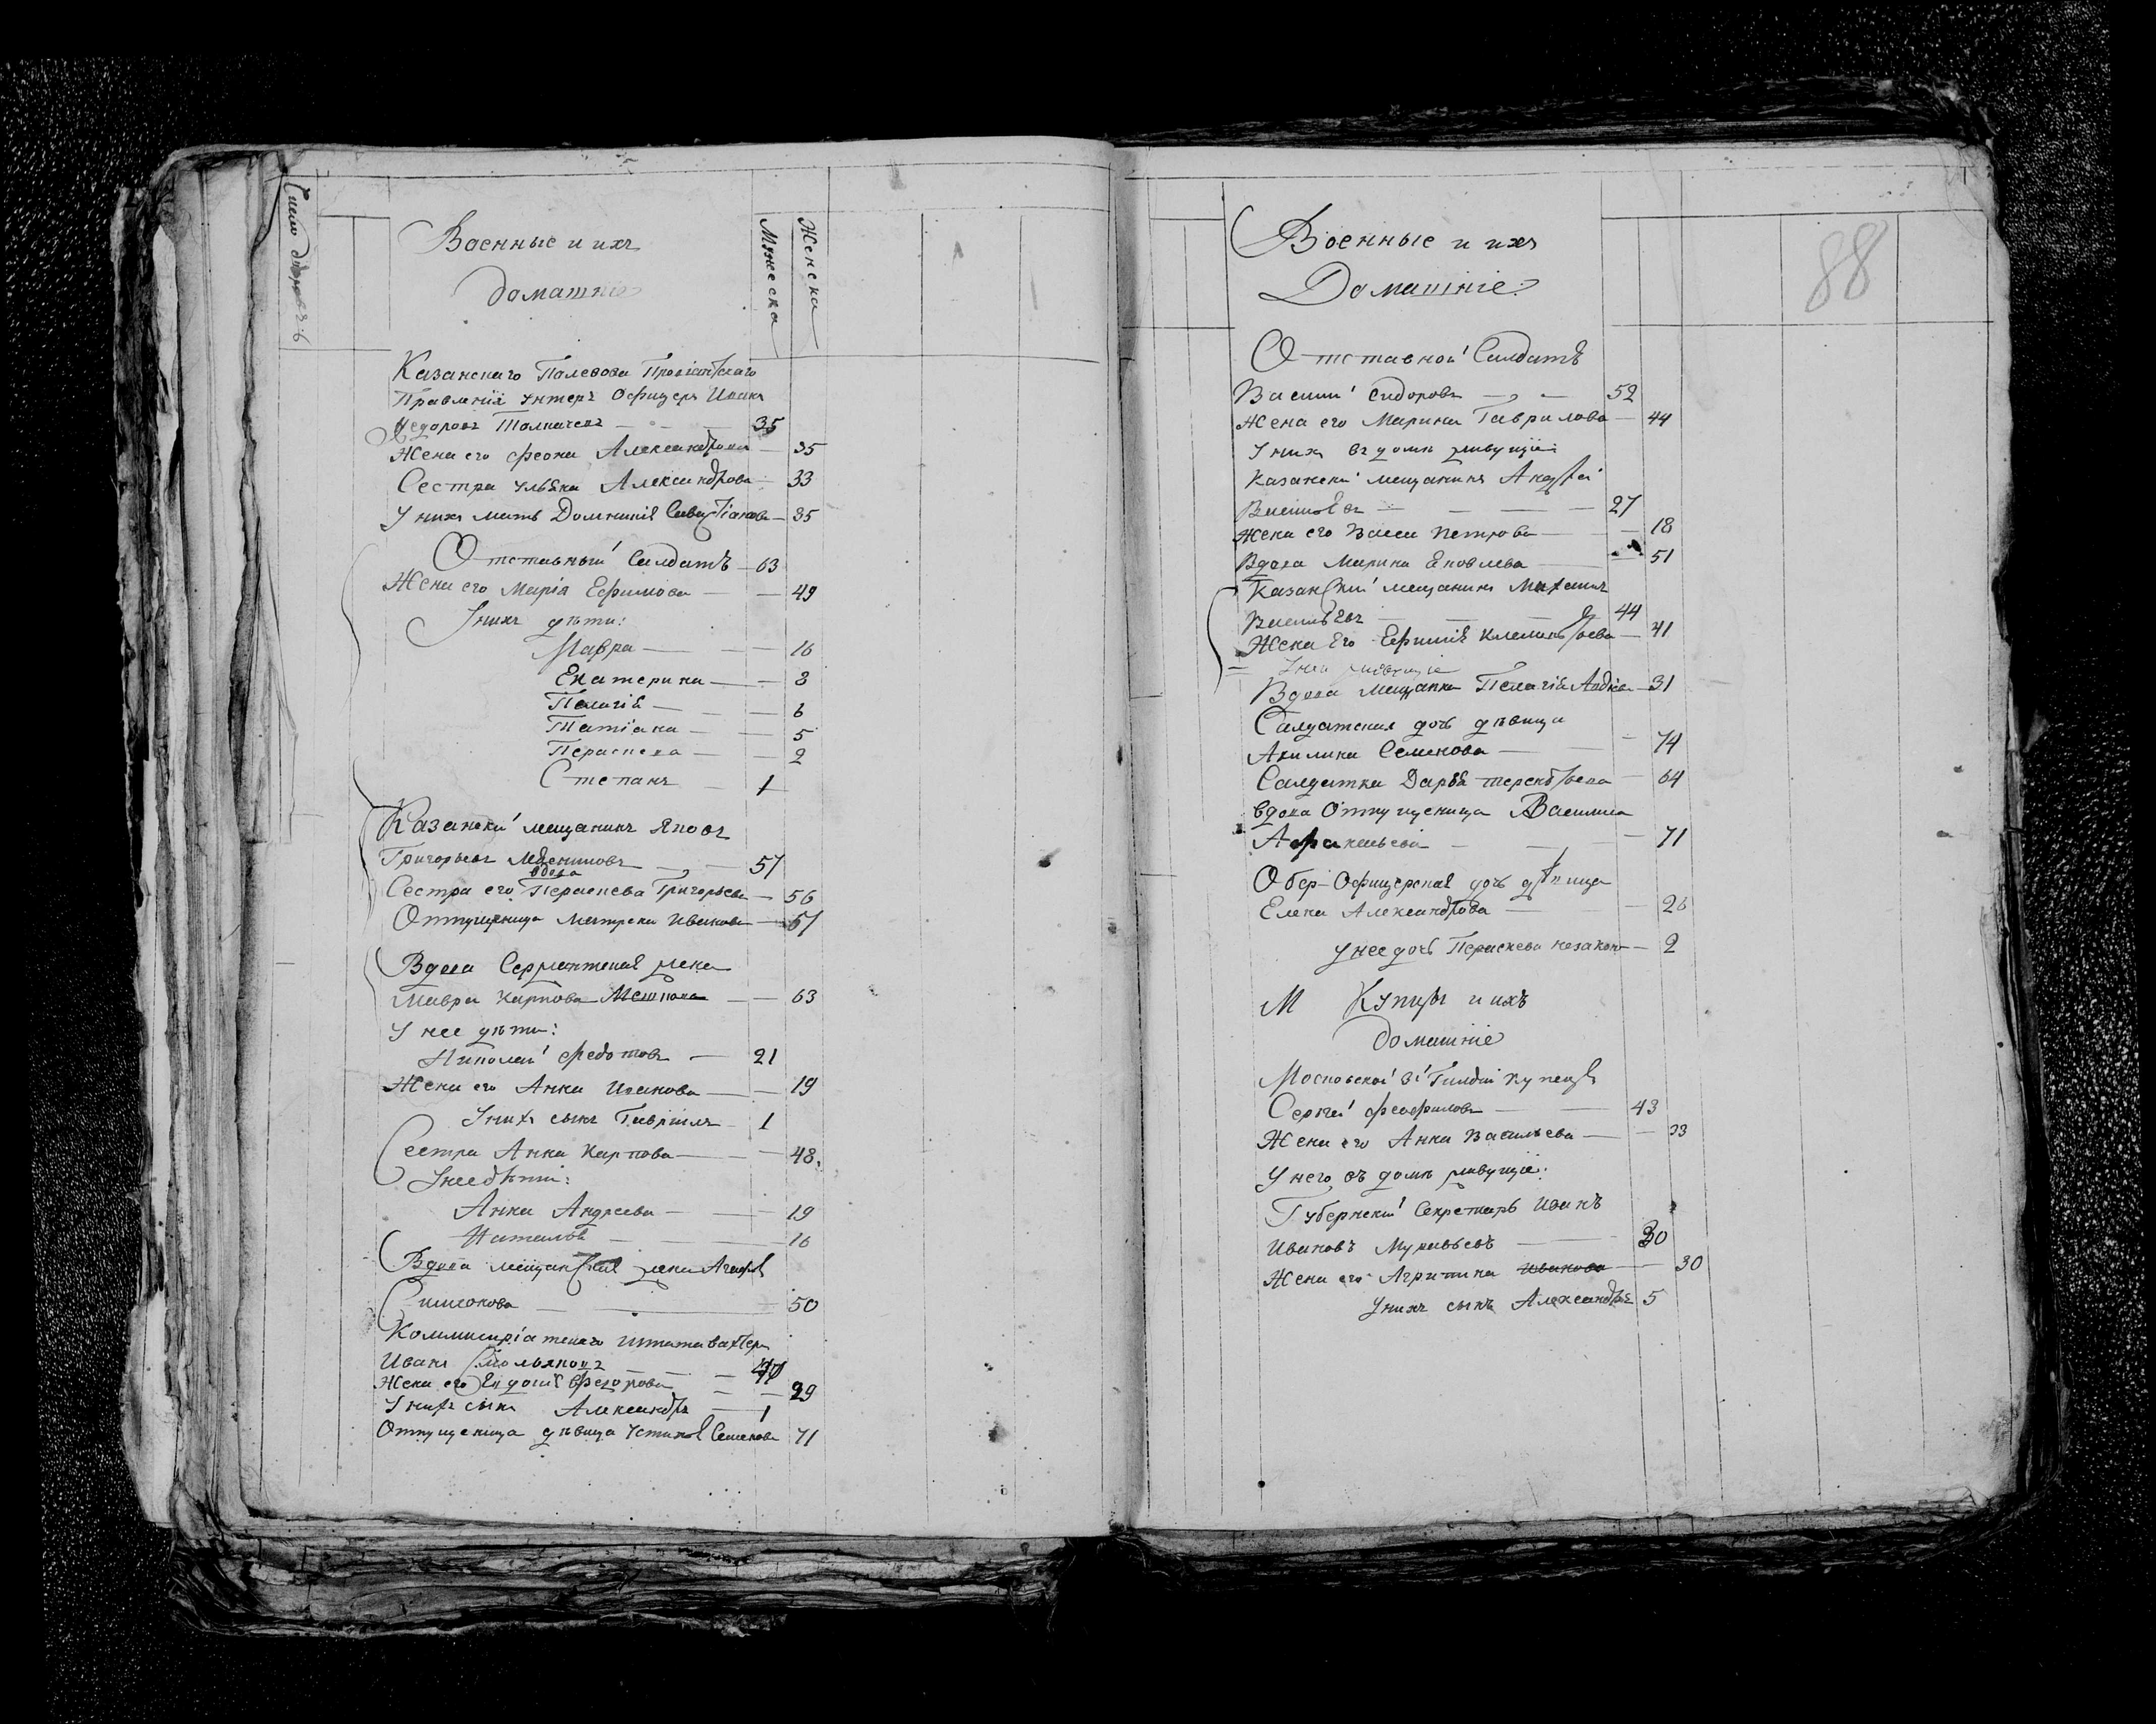 Число дворовъ
Военные и ихъ
домашніе
Мужеска
Женска
Казанскаго Палевова Провіантскаго
Правленія Унтеръ Офицеръ Иванъ
Федоровъ Толмачевъ — 35
Жена его Феона Александрова — 35
Сестра Ульяна Александрова — 33
У нихъ мать Домникія Савастіанова — 35
Отставный Салдатъ — 63
Жена его Марія Ефимова — 49
У нихъ дѣти:
Мавра — 16
Екатерина — 8
Пелагія — 6
Татіана — 5
Параскева — 2
Степанъ — 1
Казанскій мещанинъ Яковъ
Григорьевъ — 57
вдова
Сестра его Параскева Григорьева — 56
Отпущеница Матрена Иванова — 51
Вдова Сержантская жена
Мавра Карпова — 63
У нее дѣти:
Николай Федотовъ — 21
Жена его Анна Иванова — 19
У нихъ сынъ Гавріилъ 1
Сестра Анна Карпова — 48.
У нее дѣти:
Анна Андреева — 19
Наталья — 16
Вдова мещанская жена Агафія
Симеонова — 50
Коммисаріатскаго штата вахтеръ
Иванъ Смольяковъ —
Жена его Евдокія Федорова — 29
У нихъ сынъ Александръ — 1
Отпущеница дѣвица Устинія Семенова 71
88
Военные и ихъ
Домашніе:
Отставной Салдатъ
Василій Сидоровъ — 52
Жена его Марина Гаврилова — 44
У нихъ въ домѣ живущіе:
Казанскій мещанинъ Андрей
Васильевъ — 27
Жена его Васса Петрова — 18
Вдова Марина Яковлева — 51
Казанскій мещанинъ Михаилъ
Васильевъ — 44
Жена Его Ефимія Климентьева — 41
У нихъ живущіе
Вдова Мещанка Пелагія — 31
Салдатская дочь дѣвица
Акилина Семенова — 74
Салдатка Дарья терентьева — 64
вдова Отпущеница Василиса
Афанасьева — 71
Обер-Офицерская дочь дѣвица
Елена Александрова — 26
у нее дочь Параскева незакон — 2
М Купцы и ихъ
домашніе
Московской 3й Гилдіи купецъ
Сергѣй Феофиловъ — 43
Жена его Анна Васильева — 33
У него въ домѣ живущіе:
Губернскій Секретарь Иванъ
Ивановъ Муравьевъ — 30
Жена его Агрипина Иванова — 30
У нихъ сынъ Александръ 5